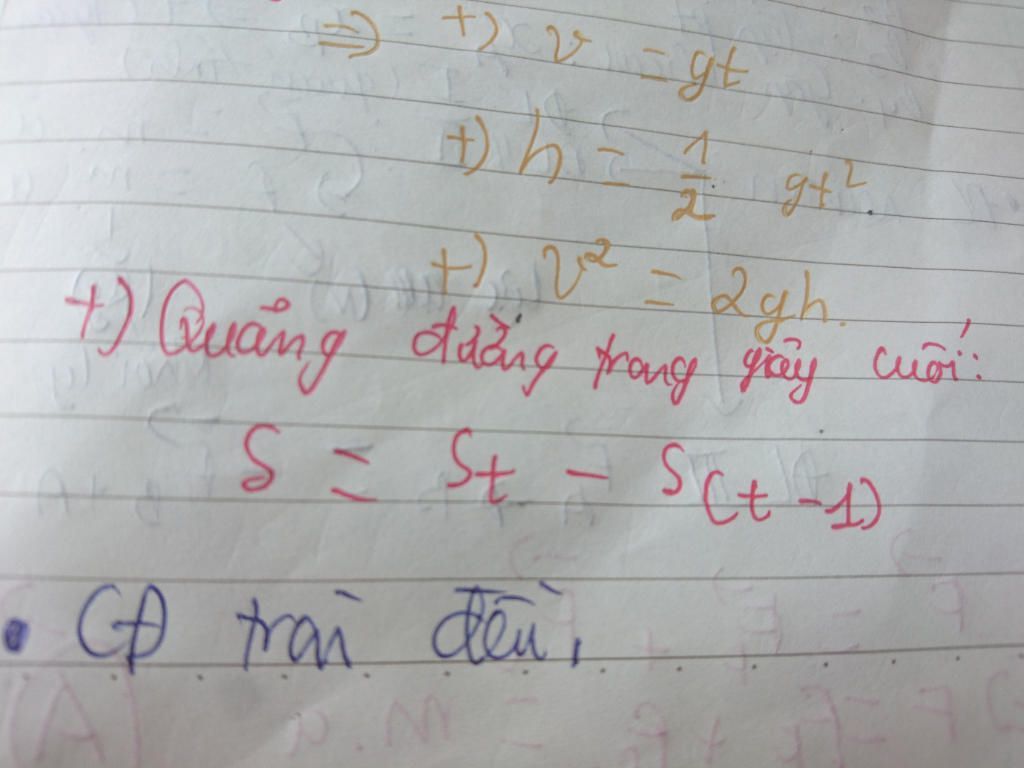 ⇒ +) v = gt
+) h = 1/2 gt²
+) v² = 2gh.
+) Quãng đường trong giây cuối:
S = St - S(t-1)
• CĐ tròn đều.